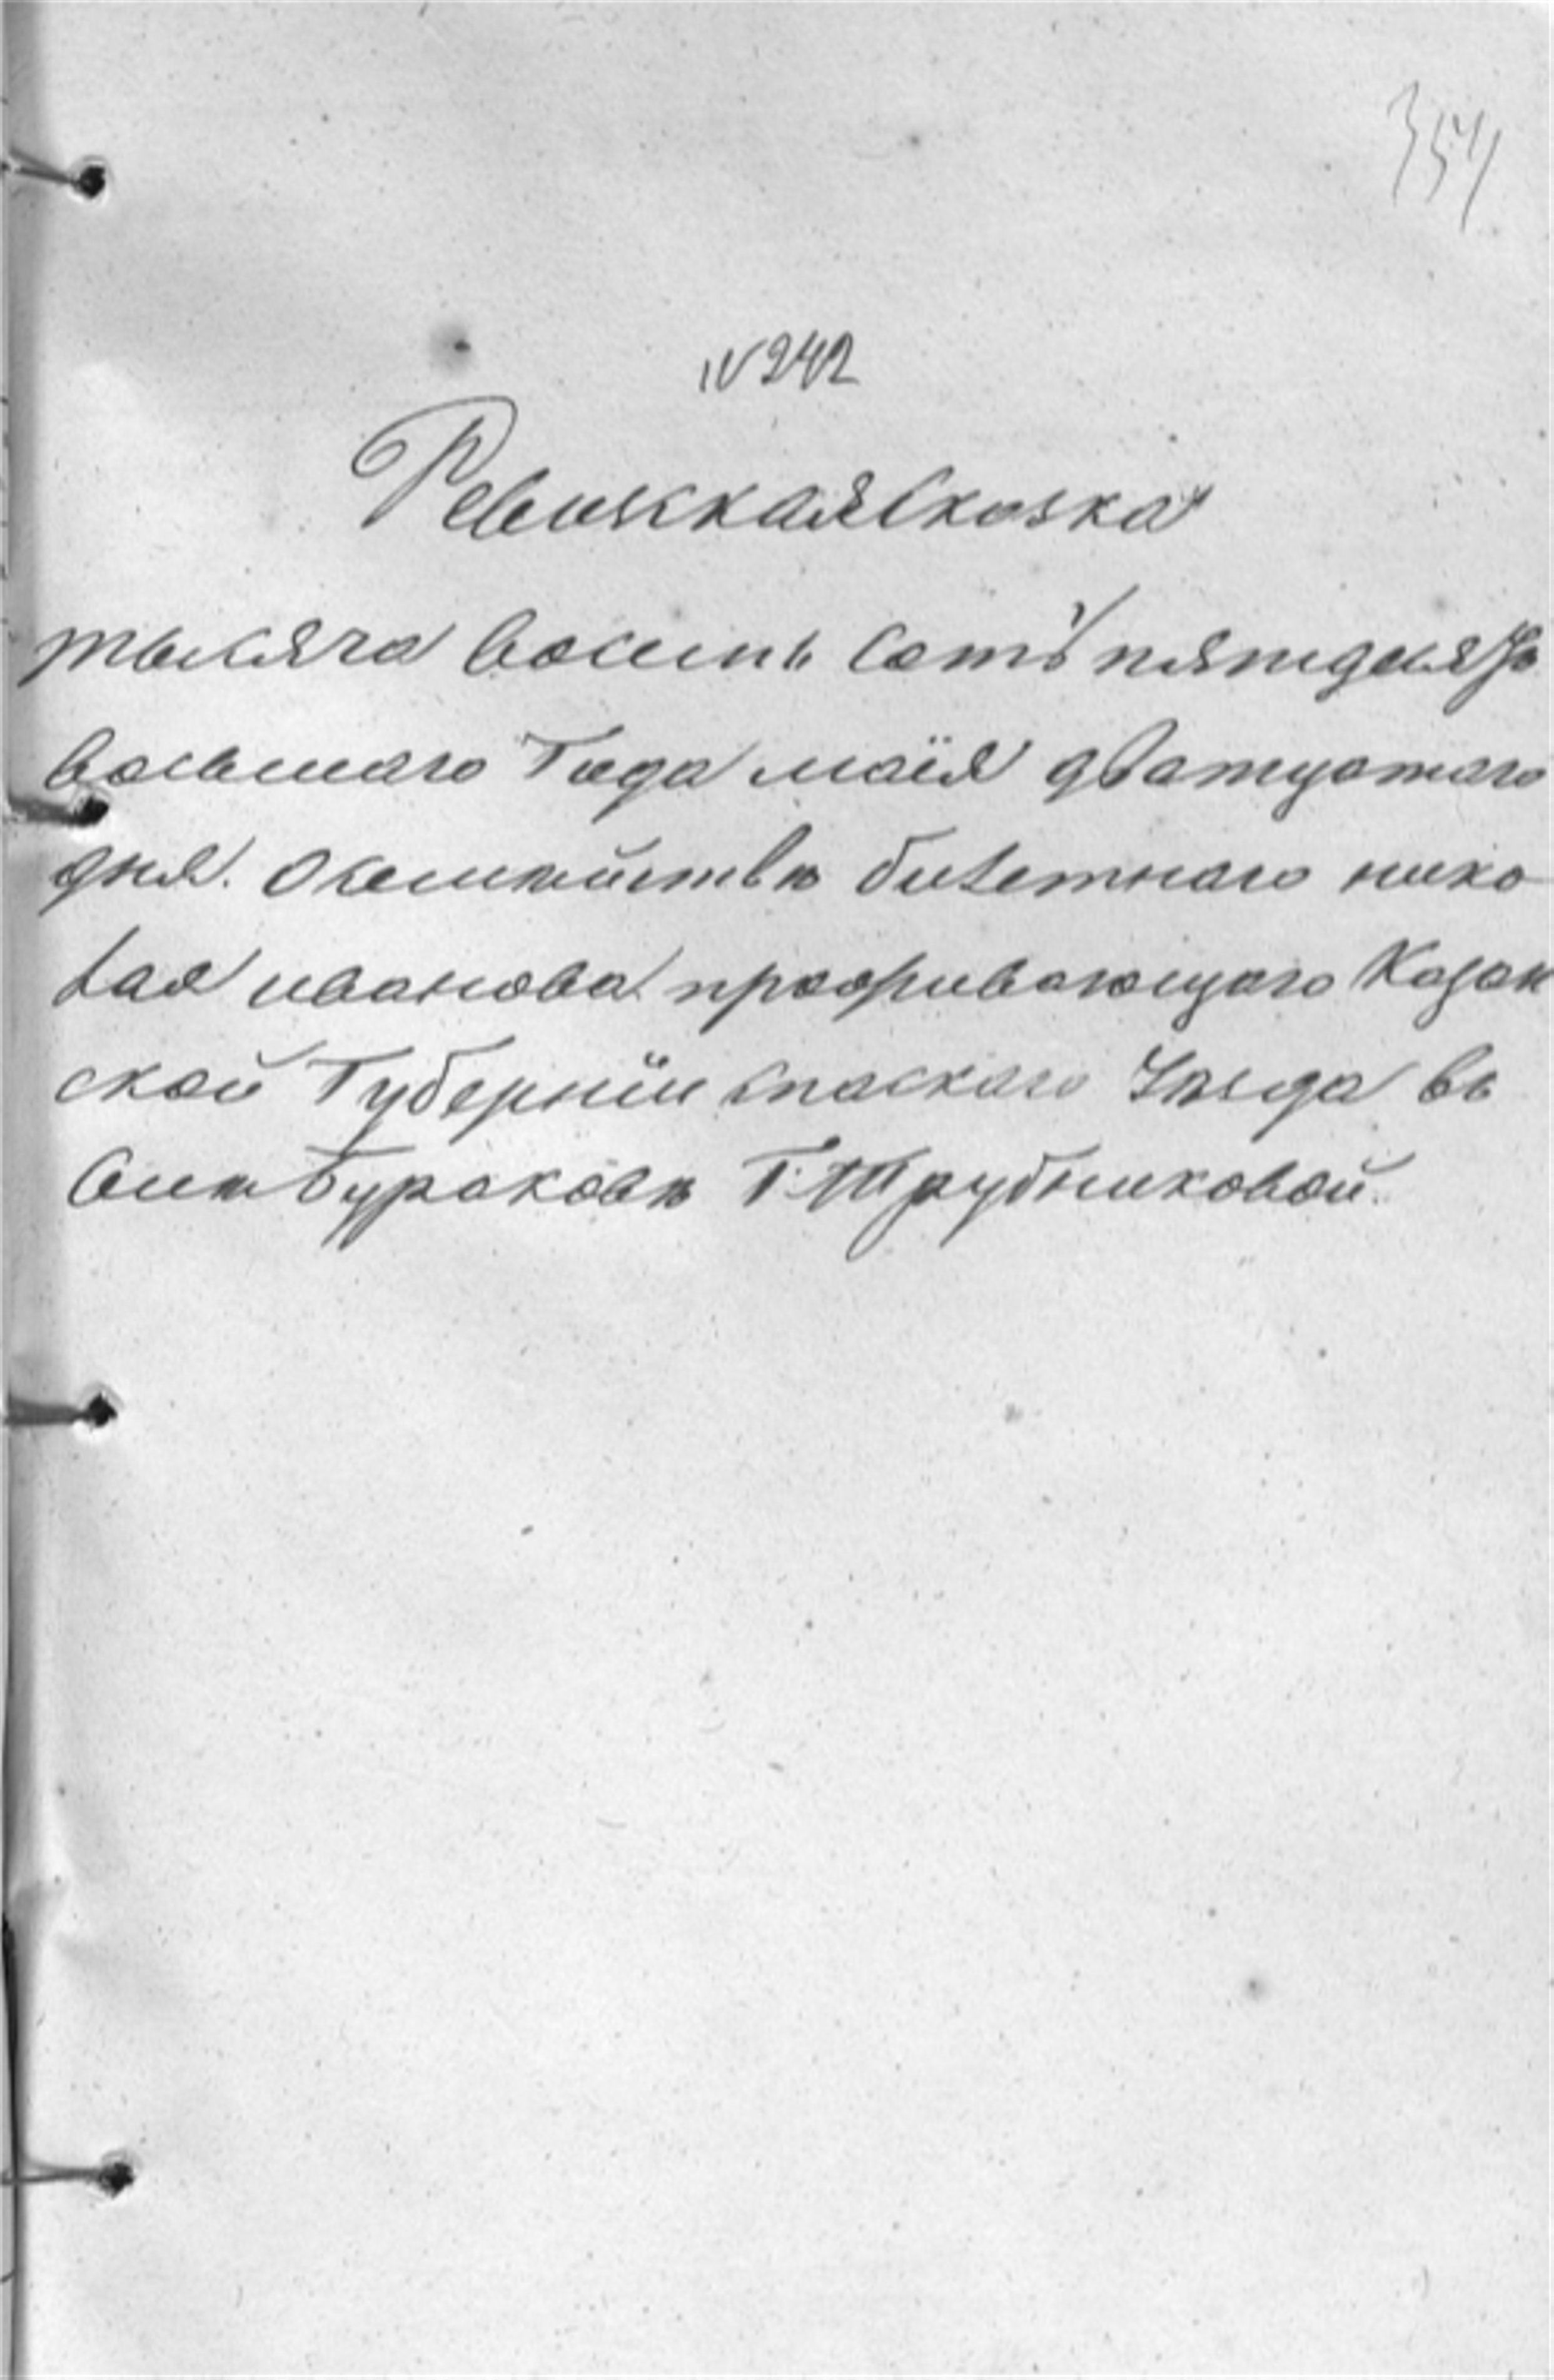 354
№ 242
Ревизская Сказка
тысяча восемь сотъ пятдеся
восьмаго Года маія дватцотаго
дня. О семействѣ билетнаго нико
лая иванова. проживающаго Казан
ской Губерніи спаскаго Уѣзда въ
Бураковѣ Г. Трубниковой.